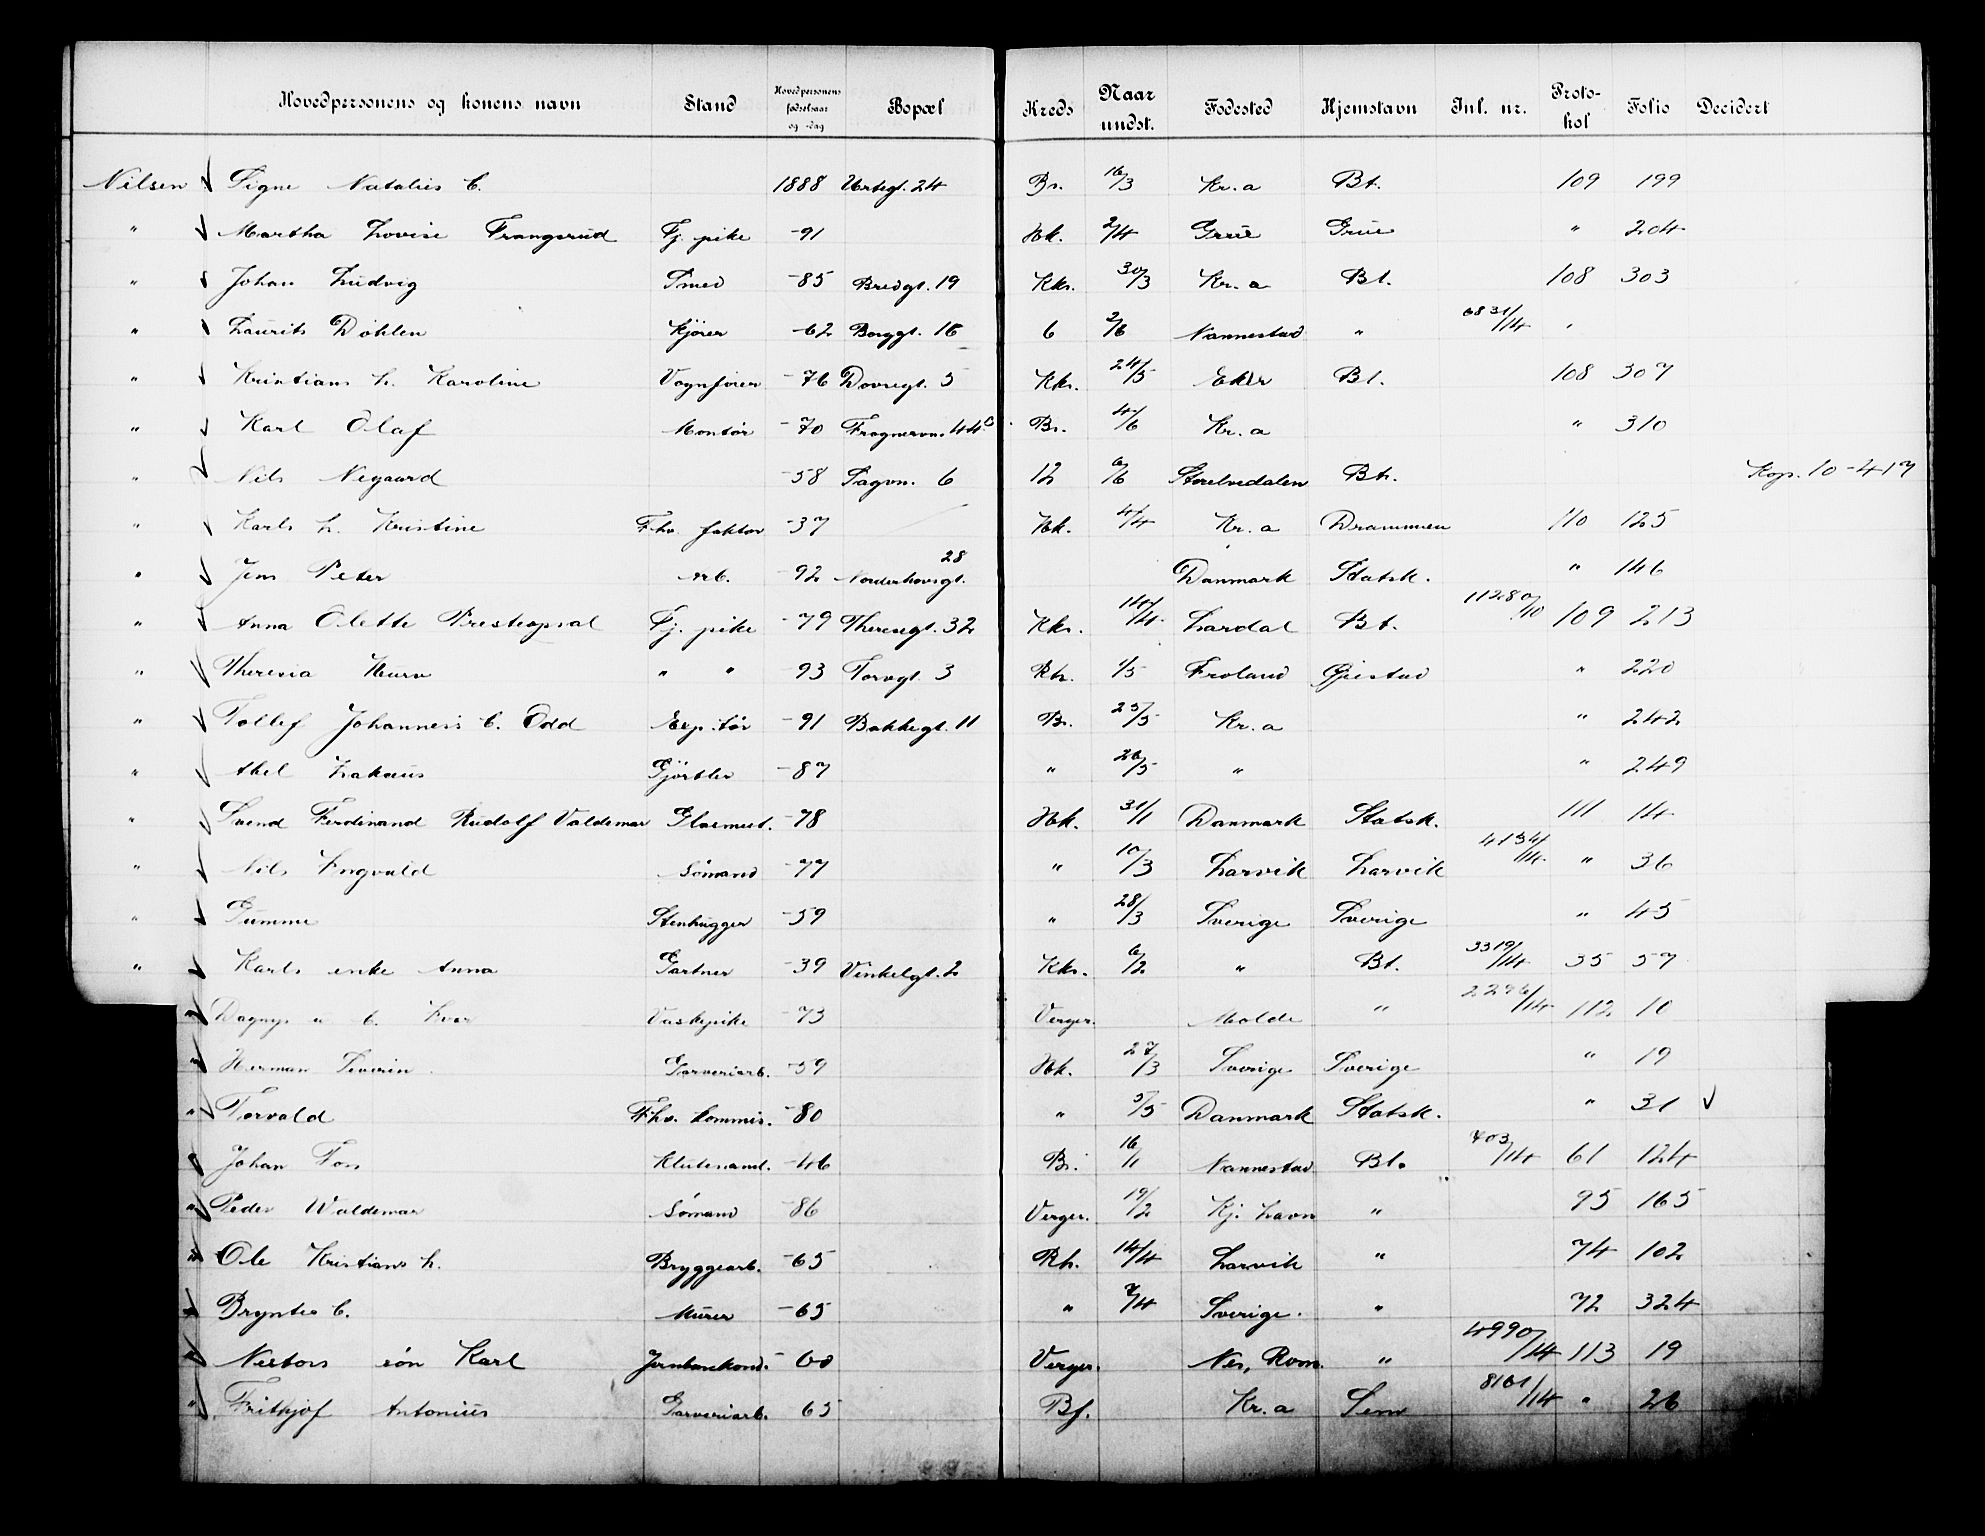 Hovedpersonens og konens navn Stand Hovedpersonens fødselsaar og -dag Bopæl Kreds Naar undst. Fødested Hjemstavn Jnl. nr. Protokol Folio Decidert
Nilsen Signe Natalies b. 1888 Urtegt. 24 Br. 16/3 Kr.a Bt. 109 199
" Martha Lovise Frangsrud Tj. pike -91 Hk. 2/4 Grue Grue " 204
" Johan Ludvig Smed -85 Bredgt. 19 Kks. 30/3 Kr.a Bt. 108 303
" Laurits Døhlen Kjører -62 Borggt. 16 6 2/6 Nannestad " 6831/14 "
" Kristians h. Karoline Vognfører -76 Dovregt. 5 Kks. 24/5 Eker Bt. 108 307
" Karl Olaf Montør -70 Frognervn. 44 c. Br. 4/6 Kr.a " 310
" Nils Negaard -58 Sagvn. 6 12 6/6 Storelvedalen Bt. Kop. 10-417
" Karls h. Kristine Fhv. faktor -37 Hk. 4/4 Kr.a Drammen 110 125
" Jens Peter Arb. -92 Norderhovsgt. 28 Danmark Statsk. " 146
" Anna Olette Presteopsal Tj. pike -79 Theresgt. 32 Kks. 14/4 Lardal Bt. 11280/10 109 213
" Theresia Hurv " " -93 Torvgt. 3 Rh. 1/5 Froland Øiestad " 220
" Tollef Johannes's b. Odd Exp.itør -91 Bakkegt. 11 Br. 25/5 Kr.a " 242
" Axel Zakæus Gjørtler -87 " 26/5 " " 249
" Svend Ferdinand Rudolf Valdemar Glasmest. -78 Hk. 31/1 Danmark Statsk. 111 14
" Nils Ingvald Sømand -77 " 10/3 Larvik Larvik 4134/14 " 36
" Gumme Stenhugger -59 " 28/3 Sverige Sverige " 45
" Karls enke Anna Gartner -39 Vinkelgt. 2 Kks. 6/2 " Bt. 3319/14 35 57
" Dagnys u. b. Ivar Vaskepike -73 Verger. Molde " 2296/14 112 10
" Herman Severin Garveriarb. -59 Hk. 27/3 Sverige Sverige " 19
" Torvald Fhv. kommis. -80 " 5/5 Danmark Statsk. " 31
" Johan Fos Klutesaml. -46 Br. 16/1 Nannestad Bt. 703/14 61 124
" Peder Waldemar Sømand -86 Verger. 19/2 Kj. havn " 95 165
" Ole Kristians h. Bryggearb. -65 Rh. 14/4 Larvik " 74 102
" Bryntes b. Murer -65 " 7/4 Sverige. " 72 324
" Nestors søn Karl Jernbanekond. -60 Verger. Nes, Rom. " 4990/14 113 19
" Fritjof Antonius Garveriarb. 65 Bf. Kr.a Sem 8161/14 " 26